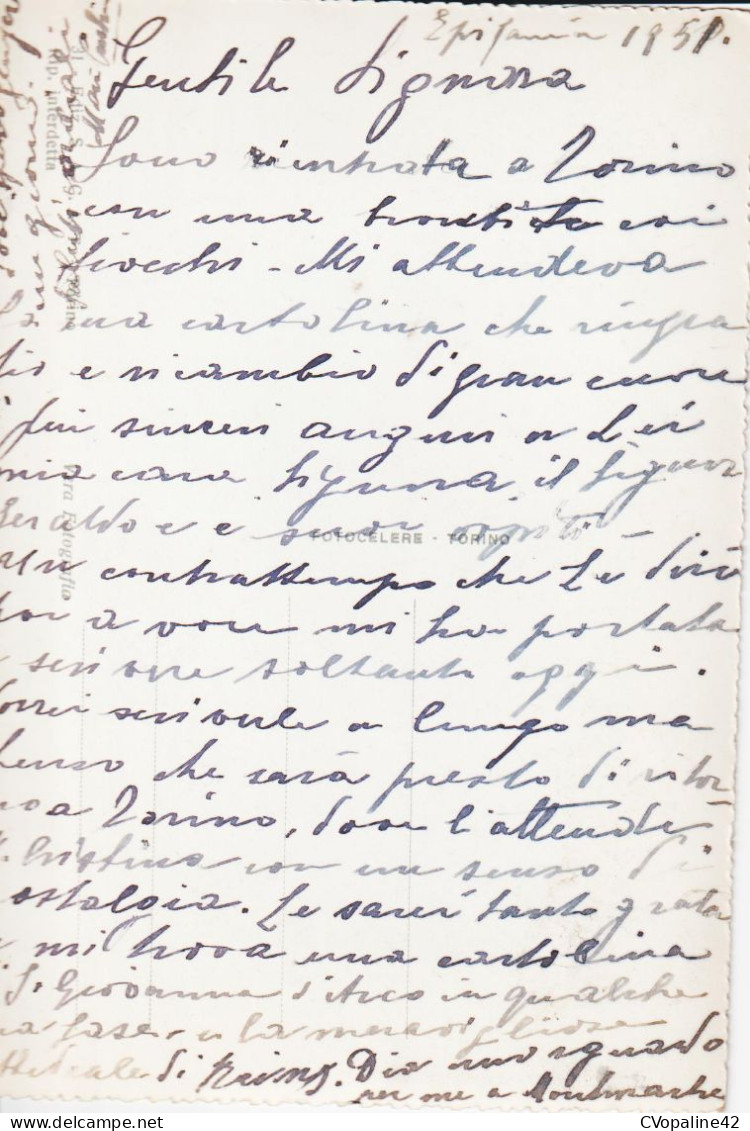 Epifania 1951.
Gentile Signora
Sono rientrata a Torino
con una bronchite coi
fiocchi - Mi attendeva
la sua cartolina che ringra
zio e ricambio di gran cuore
sinceri auguri a Lei
mia cara Signora, il Signor
e suoi ospiti
Un contrattempo che Le dirò
poi a voce mi ha portata
a scrivere soltanto oggi.
Vorrei scriverle a lungo ma
penso che sarà presto di ritor
no a Torino, dove l'attende
S. Cristina con un senso di
nostalgia. Le sarei tanto grata
se mi trova una cartolina
di S. Giovanna d'Arco in qualche
sua fase, e la meravigliosa
cattedrale di Reims. Dia uno sguardo
per me a Montmartre
FOTOCELERE - TORINO
Vera Fotografia
Rip. Interdetta
CVopaline42